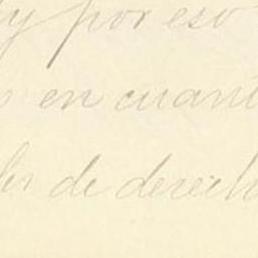 y por eso
en cuant
de derech